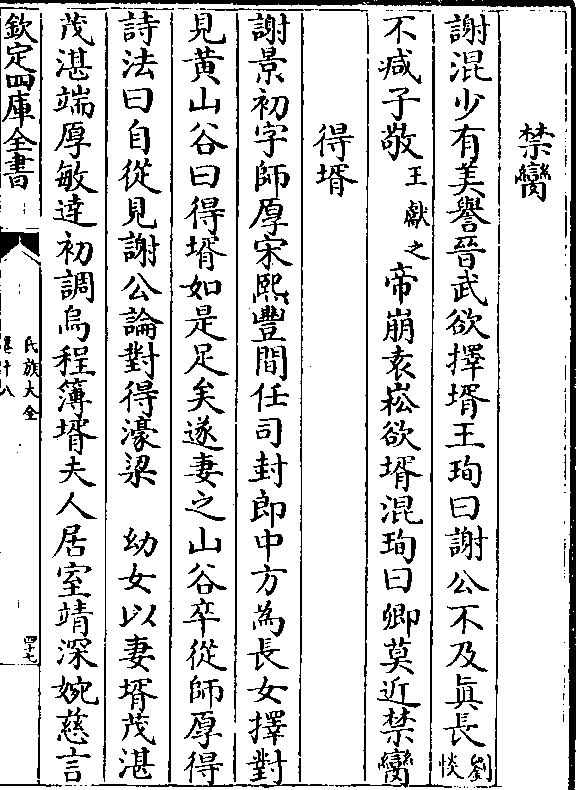 禁臠
謝混少有美譽晉武欲擇壻王珣曰謝公不及眞長劉惔
不减子敬王獻之帝崩袁崧欲壻混珣曰卿莫近禁臠
得壻
謝景初字師厚宋熙豐間任司封郎中方為長女擇對
見黄山谷曰得壻如是足矣遂妻之山谷卒從師厚得
詩法曰自從見謝公論對得濠梁 幼女以妻壻茂湛
茂湛端厚敏逹初調烏程簿壻夫人居室靖深婉慈言
欽定四庫全書
氏族大全
卷十八
四十七